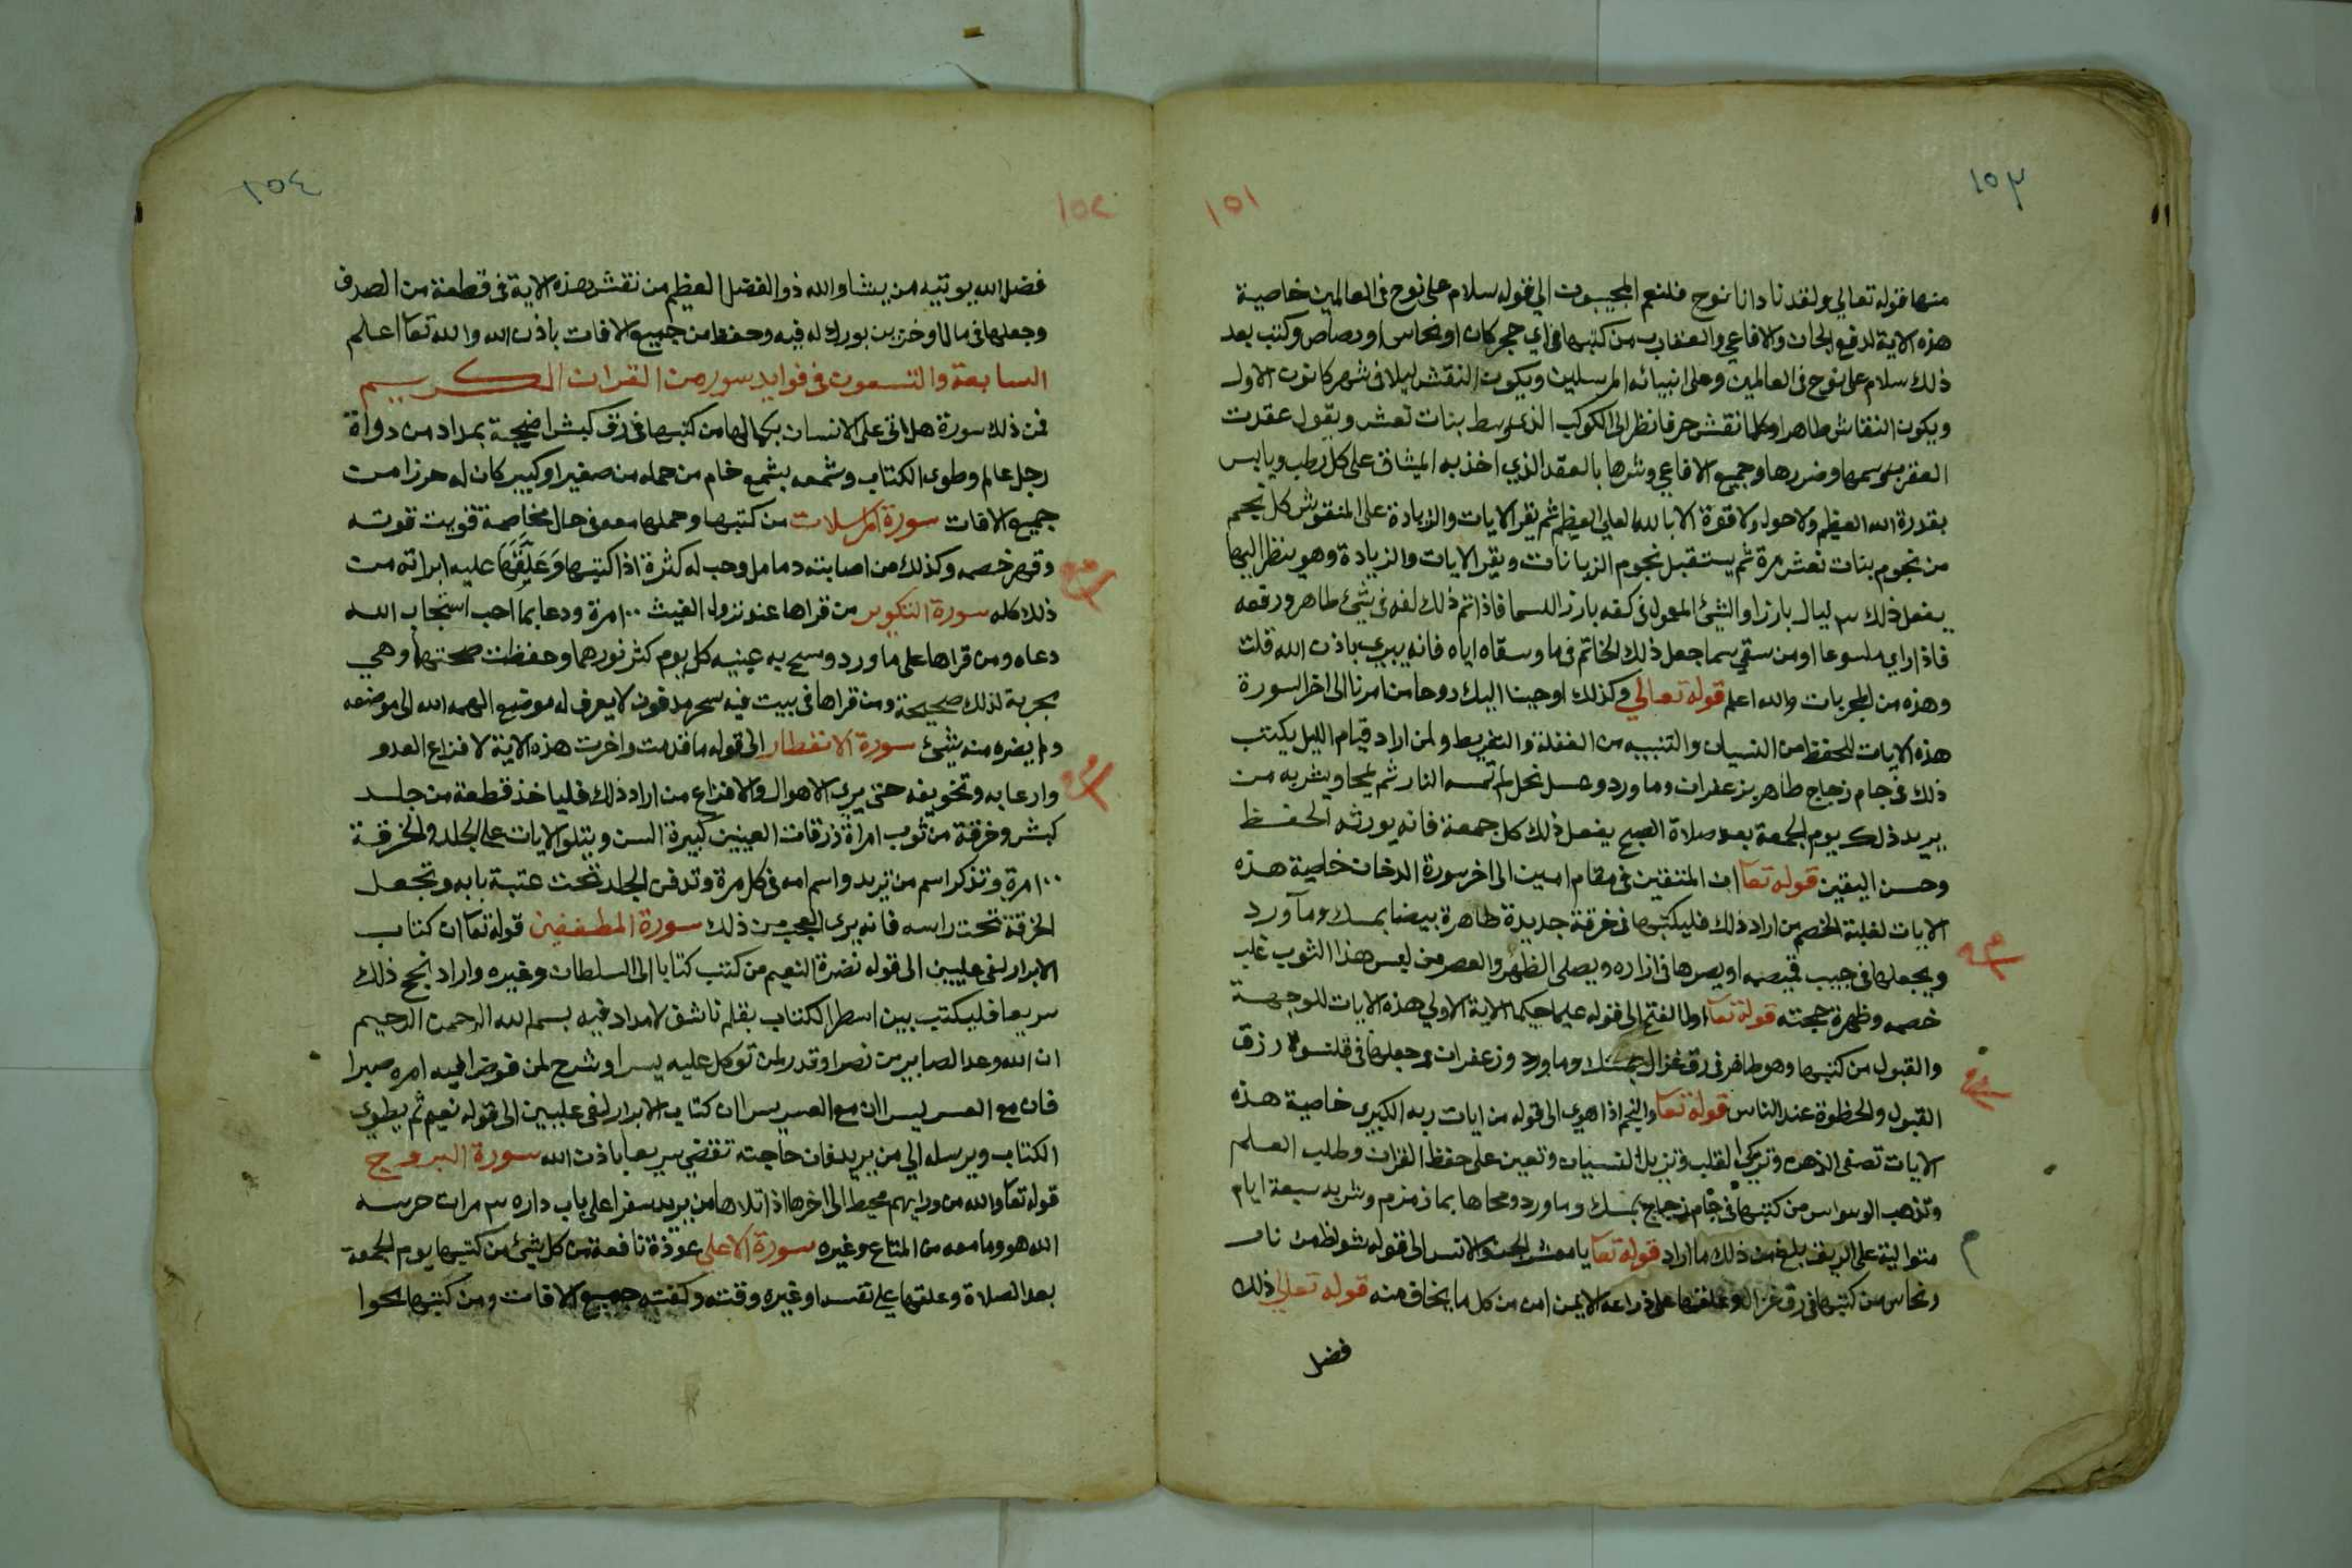 ١٥٣
١٥١
منها قوله تعالي ولقد نادانا نوح فلنعم المجيبون الي قوله سلام على نوح في العالمين خاصية
هذه الاية لدفع الجان والافاعي والعقارب من كتبها في اي حجر كان او نحاس او رصاص وكتب بعد
ذلك سلام على نوح في العالمين وعلى انبيائه المرسلين ويكون النقش ليلا في شهر كانون الاول
ويكون النقاش طاهرا وكلما نقش حرفا نظر الى الكوكب الذي وسط بنات نعش ويقول عقدت
العقرب وسمها وضررها وجميع الافاعي وشرها بالعقد الذي اخذ به الميثاق على كل رطب ويابس
بقدرة الله العظيم ولا حول ولا قوة الا بالله العلي العظيم ثم يقرا الايات والزيادة على المنقوش كل نجم
من نجوم بنات نعش مرة ثم يستقبل نجوم الزبانات ويقرا الايات والزيادة وهو ينظر اليها
يفعل ذلك ٣ ليال بارزا والشئ المعمول في كفه بارز للسما فاذا تم ذلك لفه في شئ طاهر ورفعه
فاذا راي ملسوعا او من سقي سما جعل ذلك الخاتم في ما وسقاه اياه فانه يبري باذن الله قلت
وهذه من المجربات والله اعلم قوله تعالي وكذلك اوحينا اليك روحا من امرنا الى اخر السورة
هذه الايات للحفظ من النسيان والتنبيه من الغفلة والتفريط ولمن اراد قيام الليل يكتب
ذلك في جام زجاج طاهر بزعفران وما ورد وعسل نحل لم تمسه النار ثم يمحا ويشربه من
يريد ذلك يوم الجمعة بعد صلاة الصبح يفعل ذلك كل جمعة فانه يورثه الحفظ
وحسن اليقين قوله تعا ان المتقين في مقام امين الى اخر سورة الدخان خاصية هذه
الايات لغلبة الخصم من اراد ذلك فليكتبها في خرقة جديدة طاهرة بيضا بمسك وما ورد
ويجعلها في جيب قميصه او يصرها في ازاره ويصلي الظهر والعصر من لبس هذا الثوب غلب
خصمه وظهرة حجته قوله تعا اول الفتح الى قوله عليما حكيما الاية الاولي هذه الايات للوجهة
والقبول من كتبها وهو طاهر في رق غزال بمسك وما ورد وزعفران وجعلها في قلنسوة رزق
القبول والحظوة عند الناس قوله تعا والنجم اذا هوى الى قوله من ايات ربه الكبرى خاصية هذه
الايات تصفي الذهن وتزكي القلب وتزيل النسيان وتعين على حفظ القران وطلب العلم
وتذهب الوسواس من كتبها في جام زجاج بمسك وما ورد ومحاها بما زمزم وشربه سبعة ايام
متوالية على الريق بلغ من ذلك ما اراد قوله تعا يا معشر الجن والانس الى قوله شواظ من نار
ونحاس من كتبها في رق غزال وعلقها على ذراعه الايمن امن من كل ما يخاف منه قوله تعالي ذلك
فضل
١٥٤
١٥٢
فضل الله يوتيه من يشا والله ذو الفضل العظيم من نقش هذه الاية في قطعة من الصدف
وجعلها في مال او خزين بورك له فيه وحفظ من جميع الافات باذن الله والله تعا اعلم
السابعة والتسعون في فوايد سور من القران الكريم
فمن ذلك سورة هل اتى على الانسان بكمالها من كتبها في رق كبش اضحية بمداد من دواة
رجل عالم وطوى الكتاب وشمعه بشمع خام من حمله من صغير او كبير كان له حرزا من
جميع الافات سورة المرسلات من كتبها وحملها معه في حال مخاصمة قويت قوته
وقهر خصمه وكذلك من اصابته دمامل وحب له كثرة اذا كتبها وعلقها عليه ابراته من
ذلك كله سورة التكوير من قراها عند نزول الغيث ١٠٠ مرة ودعا بما احب استجاب الله
دعاه ومن قراها على ما ورد ومسح به عينيه كل يوم كثر نورهما وحفظت صحتهما وهي
مجربة لذلك صحيحة ومن قراها في بيت فيه سحر مدفون لا يعرف له موضع الهمه الله الى موضعه
ولم يضره منه شئ سورة الانفطار الى قوله ما قدمت واخرت هذه الاية لافزاع العدو
وارعابه وتخويفه حتى يرى الاهوال والافزاع من اراد ذلك فلياخذ قطعة من جلد
كبش وخرقة من ثوب امراة زرقات العينين كبيرة السن ويتلو الايات على الجلد والخرقة
١٠٠ مرة وتذكر اسم من تريد واسم امه في كل مرة وتدفن الجلد تحت عتبة بابه وتجعل
الخرقة تحت راسه فانه يرى العجب من ذلك سورة المطففين قوله تعا ان كتاب
الابرار لفي عليين الى قوله نضرة النعيم من كتب كتابا الى السلطان وغيره واراد نجح ذلك
سريعا فليكتب بين اسطر الكتاب بقلم ناشف لا مداد فيه بسم الله الرحمن الرحيم
ان الله وعد الصابرين نصرا وقدر لمن توكل عليه يسرا وشرح لمن فوض اليه امره صبرا
فان مع العسر يسرا ان مع العسر يسرا ان كتاب الابرار لفي عليين الى قوله نعيم ثم يطوى
الكتاب ويرسله الي من يريد فان حاجته تقضي سريعا باذن الله سورة البروج
قوله تعا والله من ورايهم محيط الى اخرها اذا تلاها من يريد سفرا على باب داره ٣ مرات حرسه
الله هو وما معه من المتاع وغيره سورة الاعلي عوذة نافعة من كل شئ من كتبها يوم الجمعة
بعد الصلاة وعلقها على نفسه او غيره وقته وكفته جميع الافات ومن كتبها